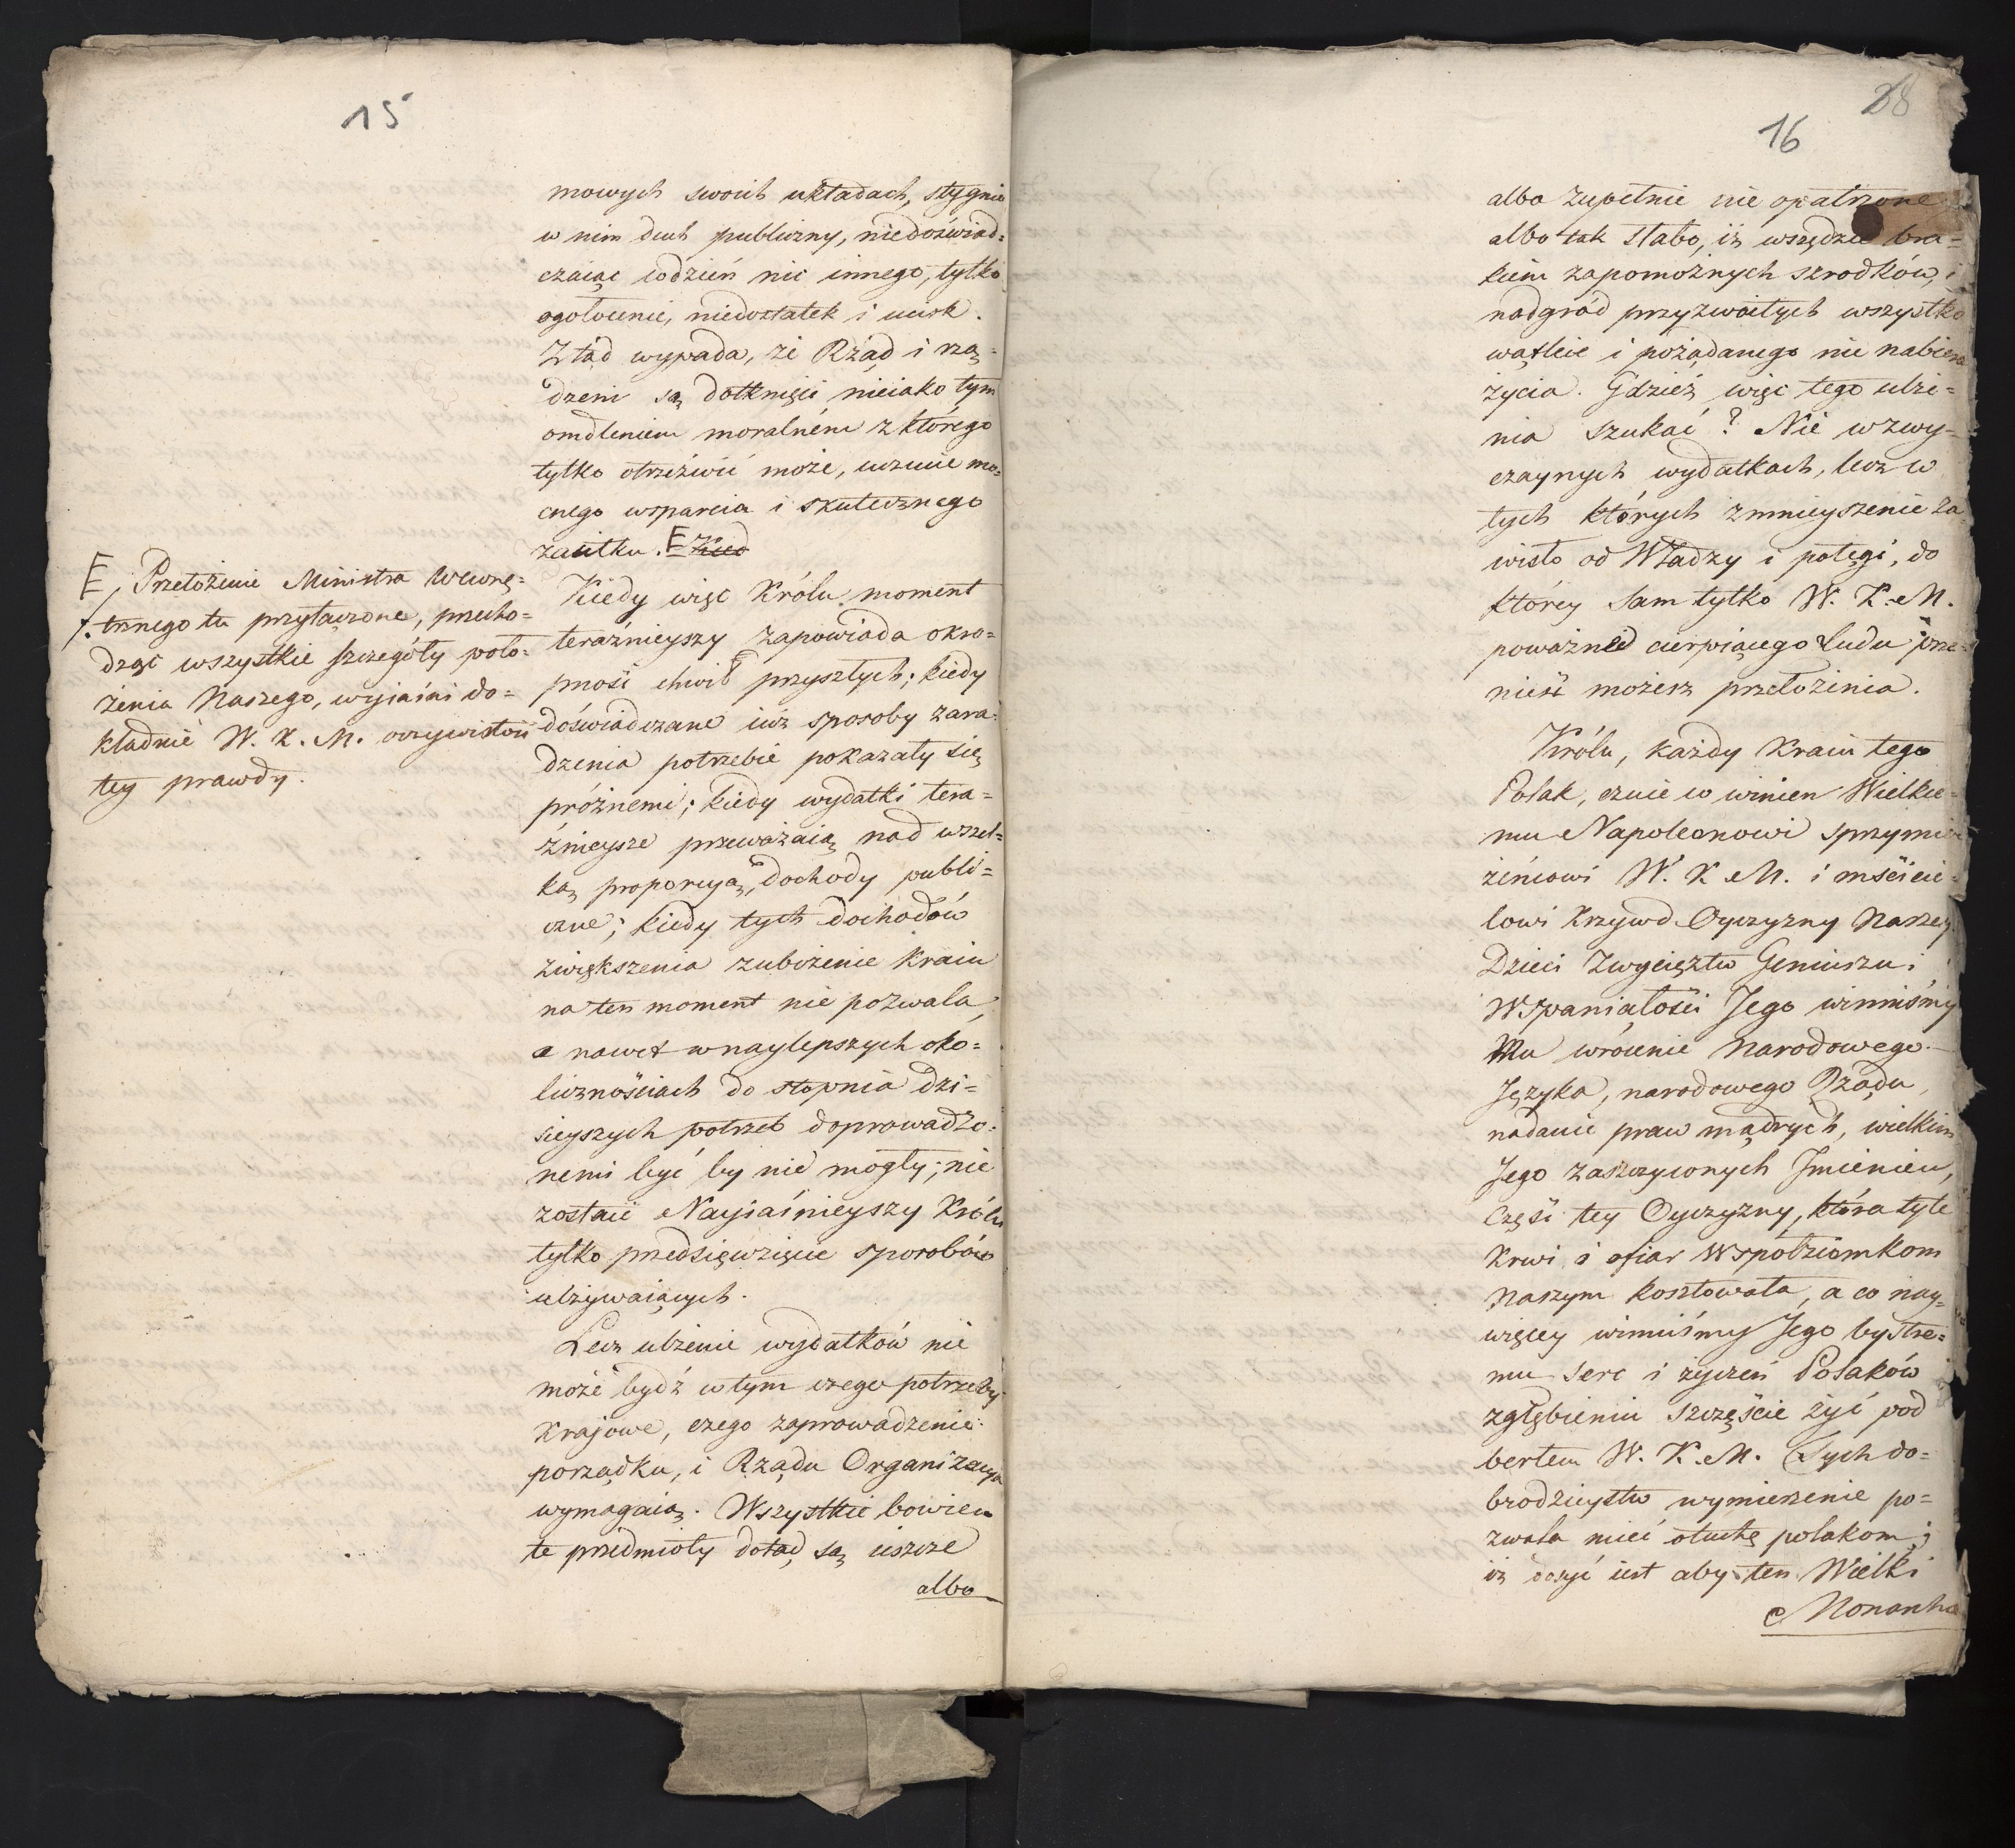 15
mowych swoich układach, stygnie
w nim duch publiczny, niedoświad=
czaiąc codzień nic innego, tylko
ogołocenie, niedostatek i ucisk.
Ztąd wypada, że Rząd i rzą=
dzeni są dotknięci nieiako tym
omdleniem moralném z którego
tylko otrzeźwić może, uczucie mo=
cnego wsparcia i skutecznego
zasiłku. E Kied
E, Przełożenie Ministra Wewnę=
trznego tu przyłączone, przecho=
dząc wszystkie szczegóły poło=
żenia Naszego, wyiaśni do=
kładnie W. K. M. oczywistość
tey prawdy.
Kiedy więc Królu moment
teraźnieyszy zapowiada okro=
pność chwil przyszłych; kiedy
doświadczane iuż sposoby zara=
dzenia potrzebie pokazały się
próżnemi; kiedy wydatki tera=
źnieysze przeważaią nad wszel=
ką proporcyą, dochody publi=
czne; kiedy tych dochodów
zwiększenia zubożenie Kraiu
na ten moment nie pozwala,
a nawet w naylepszych oko=
licznościach do stopnia dzi=
sieyszych potrzeb doprowadzo=
nemi być by nie mogły; nie
zostaie Nayiaśnieyszy Królu
tylko przedsięwzięcie sposobów
ulżywaiących.
Lecz ulżenie wydatków nie
może bydź w tym czego potrzeby
Krajowe, czego zaprowadzenie
porządku, i Rządu Organizacya
wymagaią. Wszystkie bowiem
te przedmioty dotąd są ieszcze
albo
28
16
albo zupełnie nie opatrzone
albo tak słabo, iż wszędzie bra=
kiem zapomożnych szrodków, i
nadgród przyzwoitych wszystko
wątleie i pożądanego nie nabiera
życia. Gdzież więc tego ulże=
nia szukać? Nie w zwy=
czaynych wydatkach, lecz w
tych których zmnieyszenie za
wisło od Władzy i potęgi, do
którey sam tylko W. K. M.
poważne cierpiącego Ludu prze=
nieść możesz przełożenia.
Królu, każdy Kraiu tego
Polak, czuie co winien Wielkie=
mu Napoleonowi sprzymie
rzeńcowi W. K. M. i mścicie=
lowi krzywd Oyczyzny Naszey.
Dzieci Zwycięztw Geniuszu i
Wspaniałości Jego winniśmy
Mu wrócenie Narodowego
Języka, narodowego Rządu,
nadanie praw mądrych, wielkim
Jego zaszczyconych Imieniem,
Część tey Oyczyzny, która tyle
krwi i ofiar Współziomkom
Naszym kosztowała, a co nay=
więcey winniśmy Jego bystre=
mu serc i życzeń Polaków
zgłębieniu szczęście żyć pod
berłem W. K. M. Tych do=
brodzieystw wymierzenie po=
zwala mieć otuchę polakom;
iż dosyć iest aby ten Wielki
Monarcha